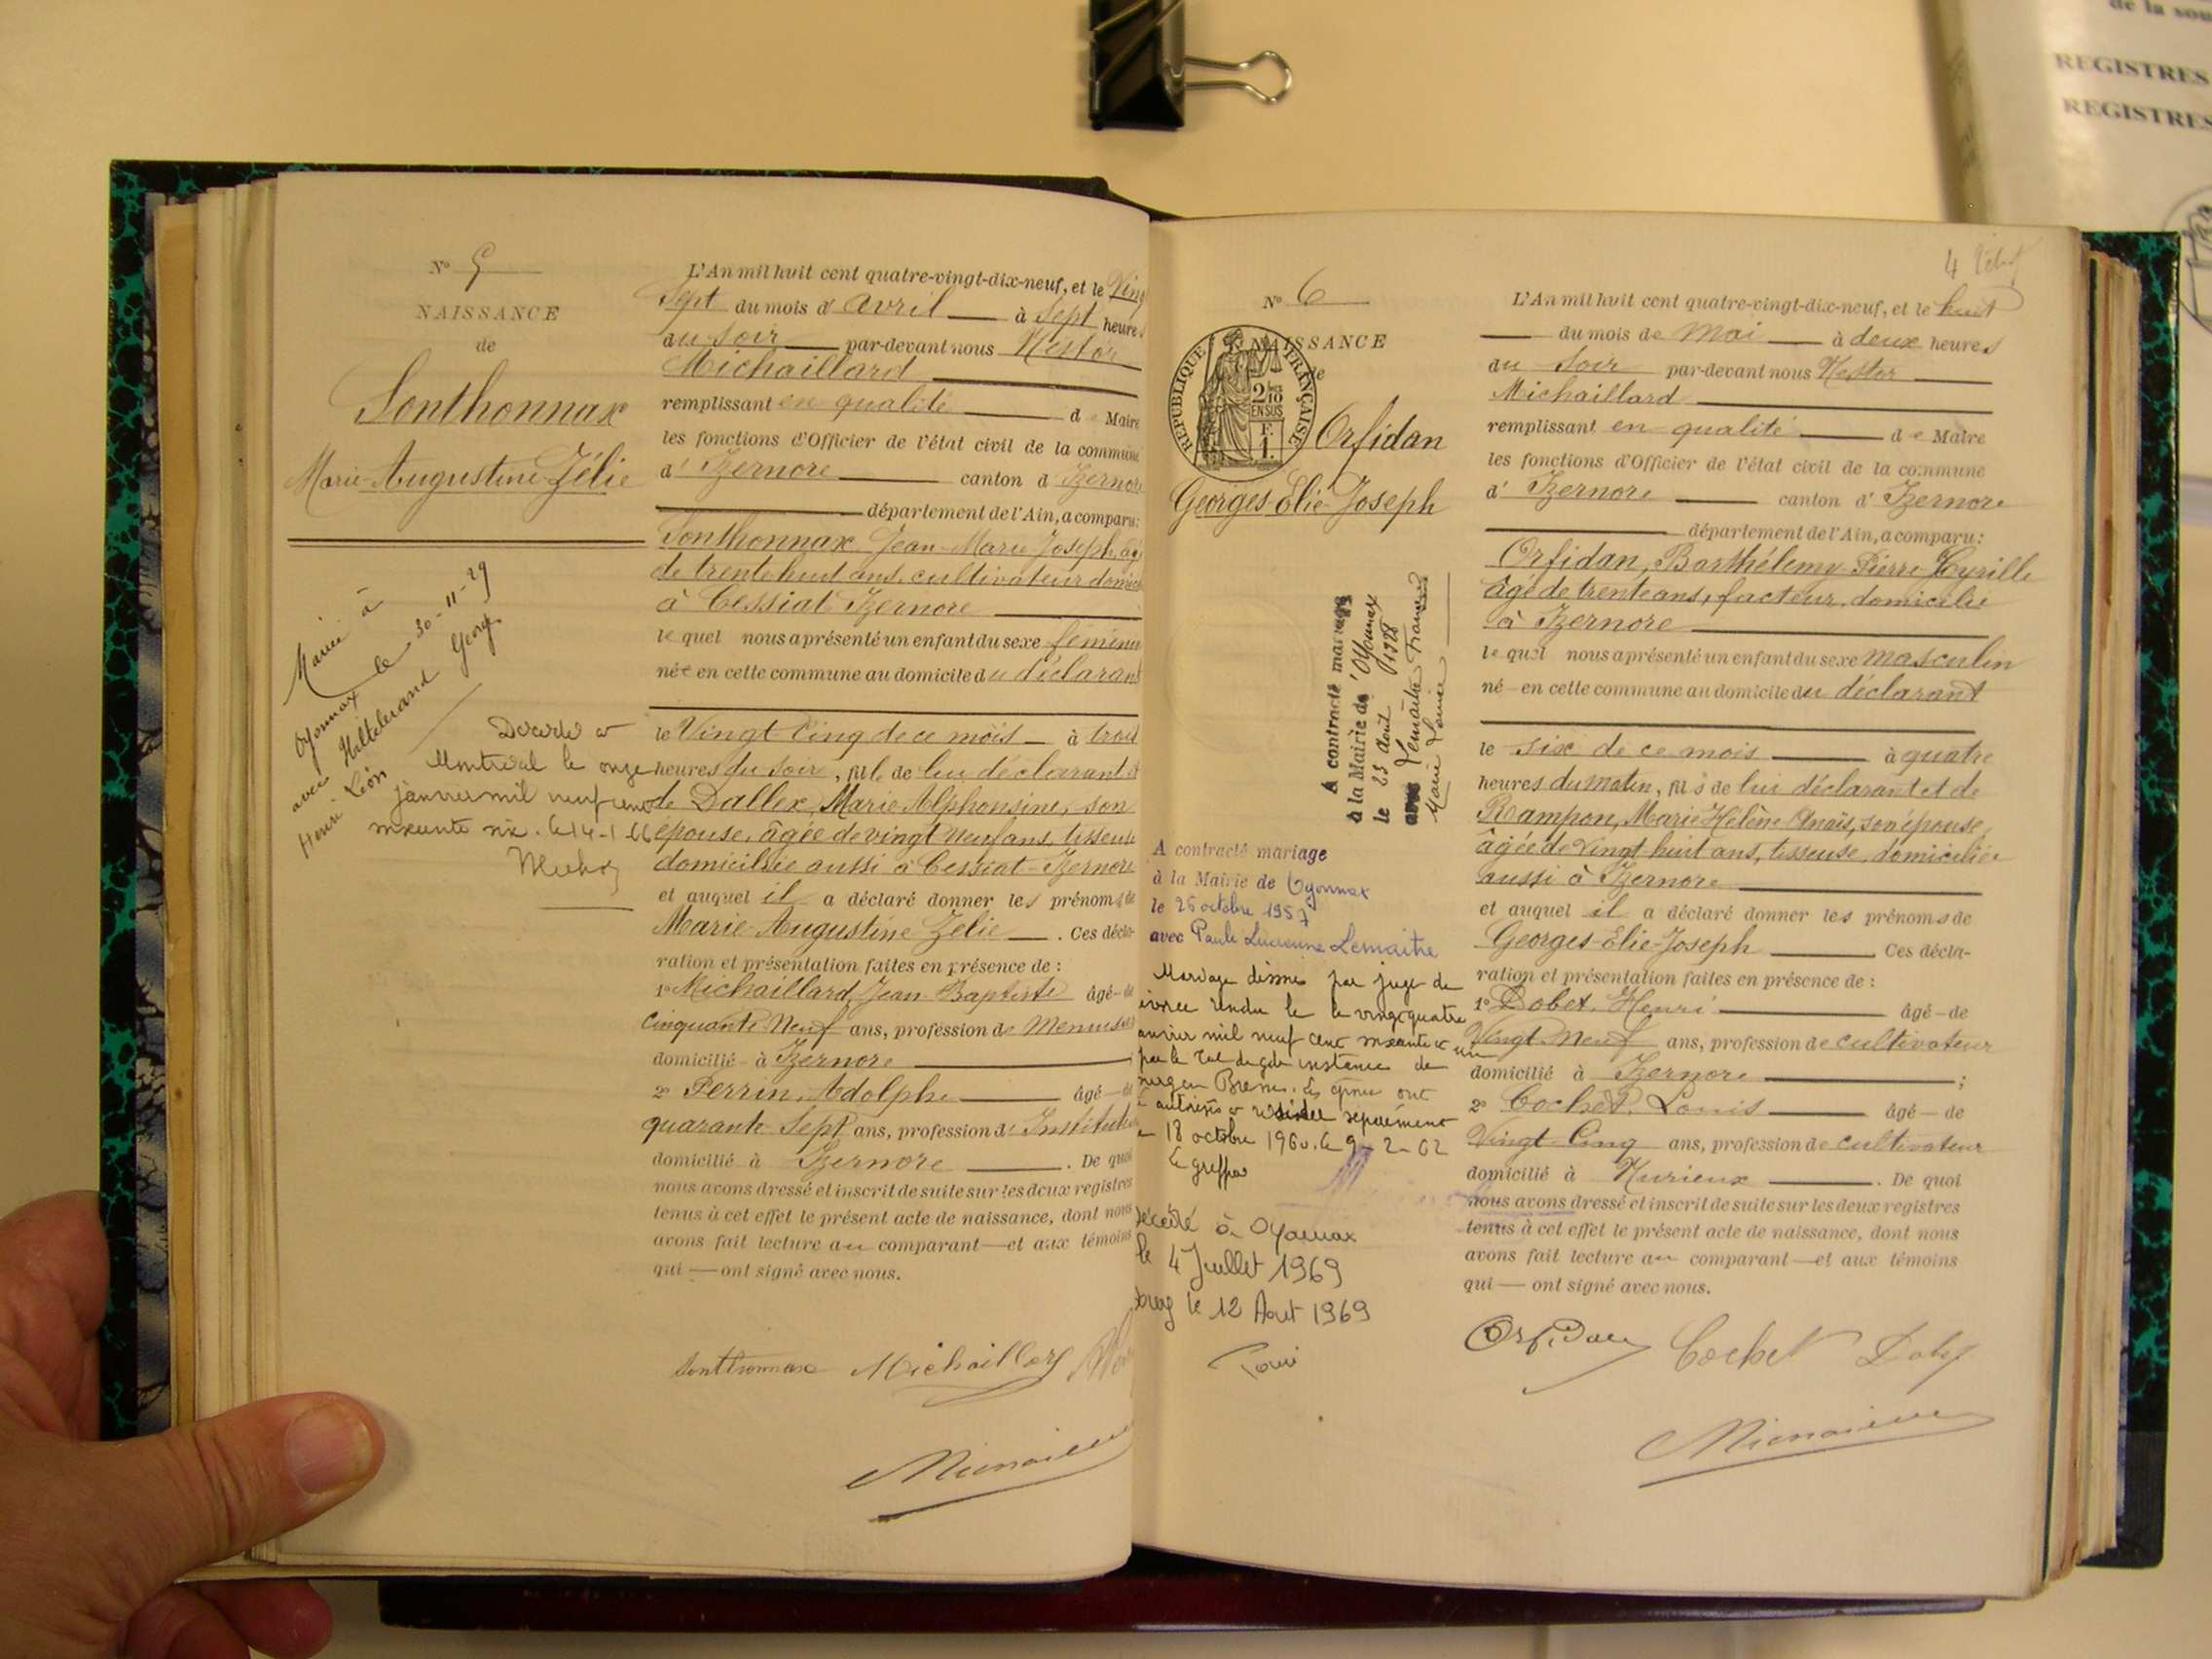 de la sou
REGISTRES
REGISTRES
N° 5
NAISSANCE
de
Sonthonnax
Marie Augustine Zélie
Marié à
Oyonnax le 30-11-29
avec Hiltebrand Georges
Henri Léon
Décédée à
Montréal le onze
janvier mil neuf cent
soixante six. Le 14-1-66
L'An mil huit cent quatre-vingt-dix-neuf, et le Vingt
Sept du mois d'avril à Sept heures
du soir par-devant nous Nestor
Michaillard
remplissant en qualité de Maire
les fonctions d'Officier de l'état civil de la commune
d'Izernore canton d'Izernore
département de l'Ain, a comparu:
Sonthonnax Jean-Marie-Joseph, âgé
de trente huit ans, cultivateur domicilié
à Cessiat Izernore
lequel nous a présenté un enfant du sexe féminin
née en cette commune au domicile du déclarant
le Vingt Cinq de ce mois à trois
heures du soir, fille de lui déclarant et
de Dallex, Marie Alphonsine, son
épouse, âgée de vingt neuf ans, tisseuse
domiciliée aussi à Cessiat-Izernore
et auquel il a déclaré donner les prénoms de
Marie Augustine Zélie. Ces décla-
ration et présentation faites en présence de :
1° Michaillard, Jean Baptiste âgé de
Cinquante Neuf ans, profession de Menuisier
domicilié à Izernore
2° Perrin, Adolphe âgé de
quarante Sept ans, profession d'Instituteur
domicilié à Izernore. De quoi
nous avons dressé et inscrit de suite sur les deux registres
tenus à cet effet le présent acte de naissance, dont nous
avons fait lecture au comparant et aux témoins
qui ont signé avec nous.
Sonthonnax Michaillard
4
N° 6
NAISSANCE
de
RÉPUBLIQUE FRANÇAISE
2/10
EN SUS
F.
1.
Orfidan
Georges-Elie-Joseph
A contracté mariage
à la Mairie de Oyonnax
le 25 Août 1928
avec Lemaitre
Marie Louise
A contracté mariage
à la Mairie de Oyonnax
le 26 octobre 1957
avec Paule Lucienne Lemaitre
Mariage dissous par jugt de
divorce rendu le vingt quatre
janvier mil neuf cent soixante et un
par le Tal de gde instance de
Bourg en Bresse. Les époux ont
été autorisés à résider séparément
le 18 octobre 1960. Le 9-2-62
Le greffier
Décédé à Oyonnax
le 4 Juillet 1969
le 12 Aout 1969
L'An mil huit cent quatre-vingt-dix-neuf, et le huit
du mois de Mai à deux heures
du Soir par-devant nous Nestor
Michaillard
remplissant en qualité de Maire
les fonctions d'Officier de l'état civil de la commune
d'Izernore canton d'Izernore
département de l'Ain, a comparu:
Orfidan, Barthélemy-Pierre-Cyrille
âgé de trente ans, facteur, domicilié
à Izernore
lequel nous a présenté un enfant du sexe masculin
né en cette commune au domicile du déclarant
le six de ce mois à quatre
heures du matin, fils de lui déclarant et de
Rampon, Marie-Hélène Anaïs, son épouse,
âgée de vingt huit ans, tisseuse, domiciliée
aussi à Izernore
et auquel il a déclaré donner les prénoms de
Georges-Elie-Joseph Ces décla-
ration et présentation faites en présence de :
1° Dobet, Henri âgé de
Vingt-Neuf ans, profession de cultivateur
domicilié à Izernore ;
2° Cochet, Louis âgé de
Vingt Cinq ans, profession de cultivateur
domicilié à Nurieux. De quoi
nous avons dressé et inscrit de suite sur les deux registres
tenus à cet effet le présent acte de naissance, dont nous
avons fait lecture au comparant et aux témoins
qui ont signé avec nous.
Orfidan Cochet Dobet